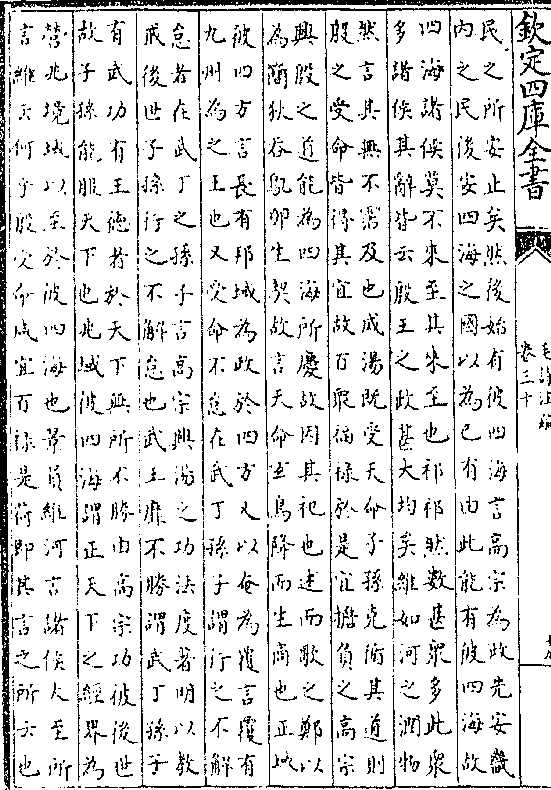 欽定四庫全書
毛詩注疏
卷三十
民之所安止矣然後始有彼四海言高宗為政先安畿
内之民後安四海之國以為已有由此能有彼四海故
四海諸侯莫不來至其來至也祁祁然數甚眾多此眾
多諸侯其辭皆云殷王之政甚大均矣維如河之潤物
然言其無不霑及也成湯既受天命子孫克循其道則
殷之受命皆得其宜故百眾福禄於是宜擔負之高宗
興殷之道能為四海所慶故因其祀也述而歌之鄭以
為簡狄吞鳦卵生契故言天命玄鳥降而生商也正域
彼四方言長有邦域為政於四方又以奄為覆言覆有
九州為之王也又受命不怠在武丁孫子謂行之不解
怠者在武丁之孫子言高宗興湯之功法度著明以教
戒後世子孫行之不解怠也武王靡不勝謂武丁孫子
有武功有王德者於天下無所不勝由高宗功彼後世
故子孫能服天下也兆域彼四海謂正天下之經界為
營兆境域以至於彼四海也景員維河言諸侯大至所
言維云何乎殷受命咸宜百禄是荷即其言之所云也